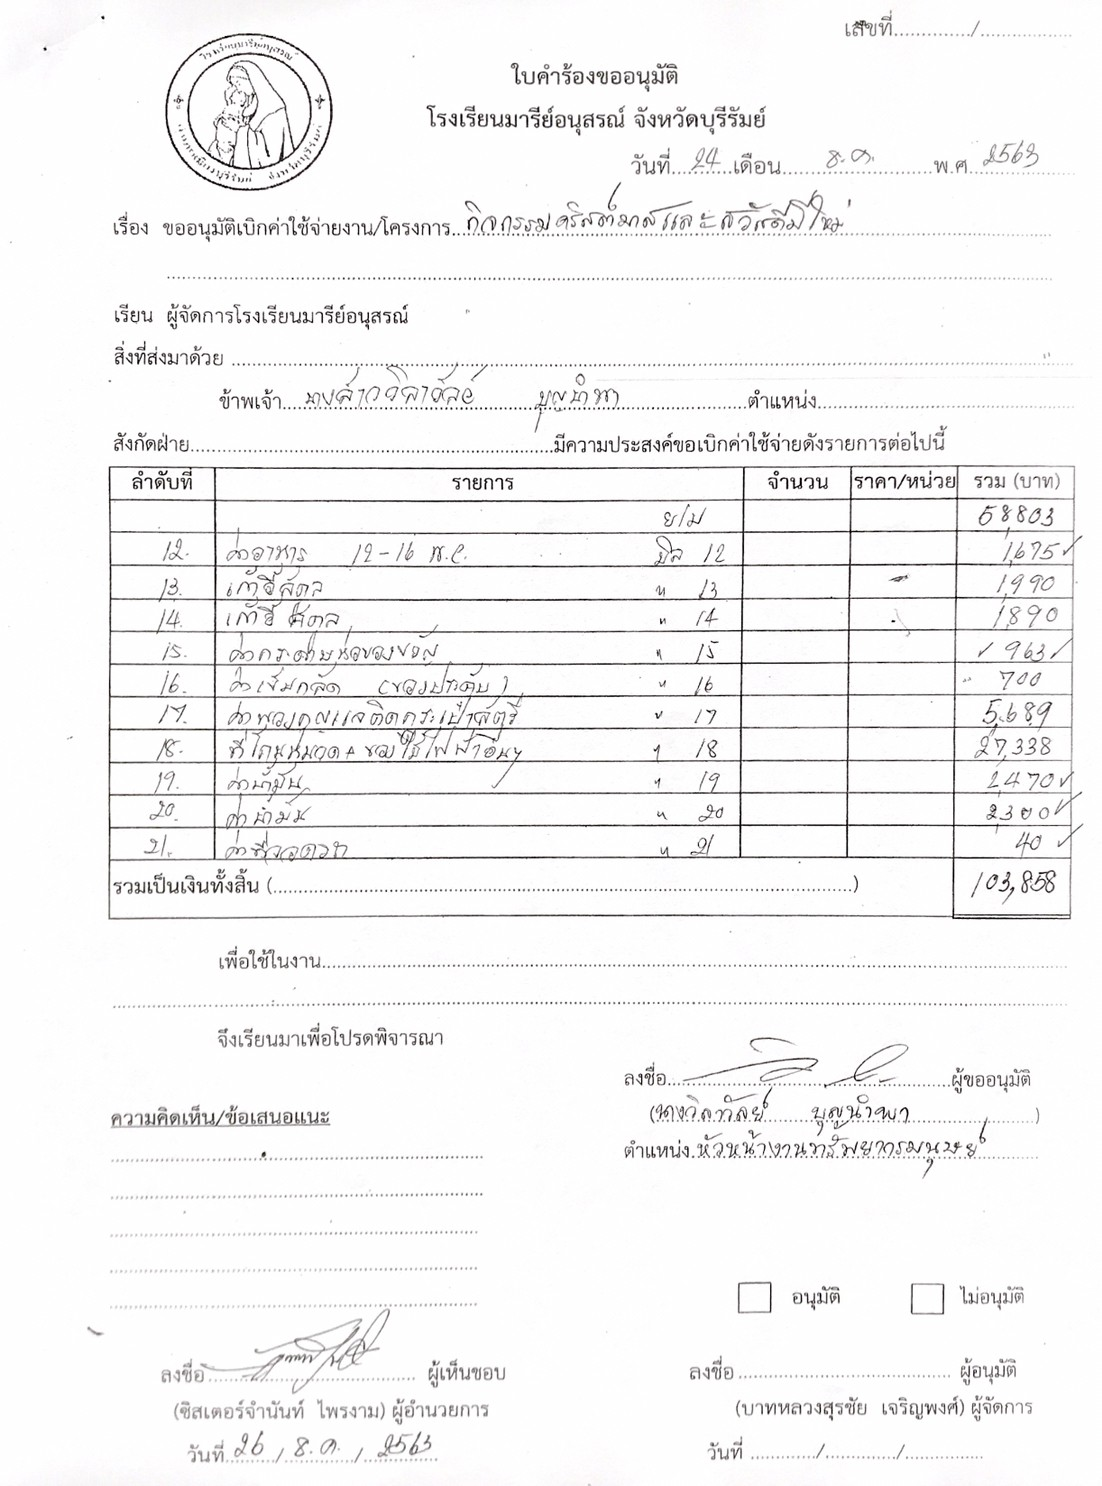 เลขที่............../..................
โรงเรียนมารีย์อนุสรณ์
ใบคำร้องขออนุมัติ
โรงเรียนมารีย์อนุสรณ์ จังหวัดบุรีรัมย์
วันที่ 24 เดือน ธ.ค. พ.ศ. 2563
เรื่อง ขออนุมัติเบิกค่าใช้จ่ายงาน/โครงการ กิจกรรมคริสต์มาสและสวัสดีปีใหม่
เรียน ผู้จัดการโรงเรียนมารีย์อนุสรณ์
สิ่งที่ส่งมาด้วย
ข้าพเจ้า ตำแหน่ง
สังกัดฝ่าย มีความประสงค์ขอเบิกค่าใช้จ่ายดังรายการต่อไปนี้
ลำดับที่ รายการ จำนวน ราคา/หน่วย รวม (บาท)
ย/ม 58803
12. ค่าอาหาร 12-16 พ.ย. บิล 12 1,675
13. เก้าอี้สตูล " 13 1,990
14. เก้าอี้สตูล " 14 1,890
15. ค่ากระดาษห่อของขวัญ " 15 963
16. ค่าเข็มกลัด (ของประดับ) " 16 700
17. ค่าพวงกุญแจติดกระเป๋าสตรี " 17 5,689
18. ที่โกนหนวด + ของใช้ไฟฟ้าอื่นๆ " 18 27,338
19. ค่าน้ำมัน " 19 2,470
20. ค่าน้ำมัน " 20 2,300
21. " 21 40
รวมเป็นเงินทั้งสิ้น (..........) 103,858
เพื่อใช้ในงาน
จึงเรียนมาเพื่อโปรดพิจารณา
ลงชื่อ ผู้ขออนุมัติ
(นางวิลาวัลย์ บุญนำพา)
ตำแหน่ง หัวหน้างานทรัพยากรมนุษย์
ความคิดเห็น/ข้อเสนอแนะ
อนุมัติ ไม่อนุมัติ
ลงชื่อ ผู้เห็นชอบ
(ซิสเตอร์จำนันท์ ไพรงาม) ผู้อำนวยการ
วันที่ 26 / ธ.ค. / 2563
ลงชื่อ ผู้อนุมัติ
(บาทหลวงสุรชัย เจริญพงศ์) ผู้จัดการ
วันที่ ............/............/..............